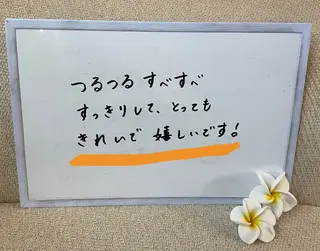 つるつる すべすべ
すっきりして、とっても
きれいで 嬉しいです!